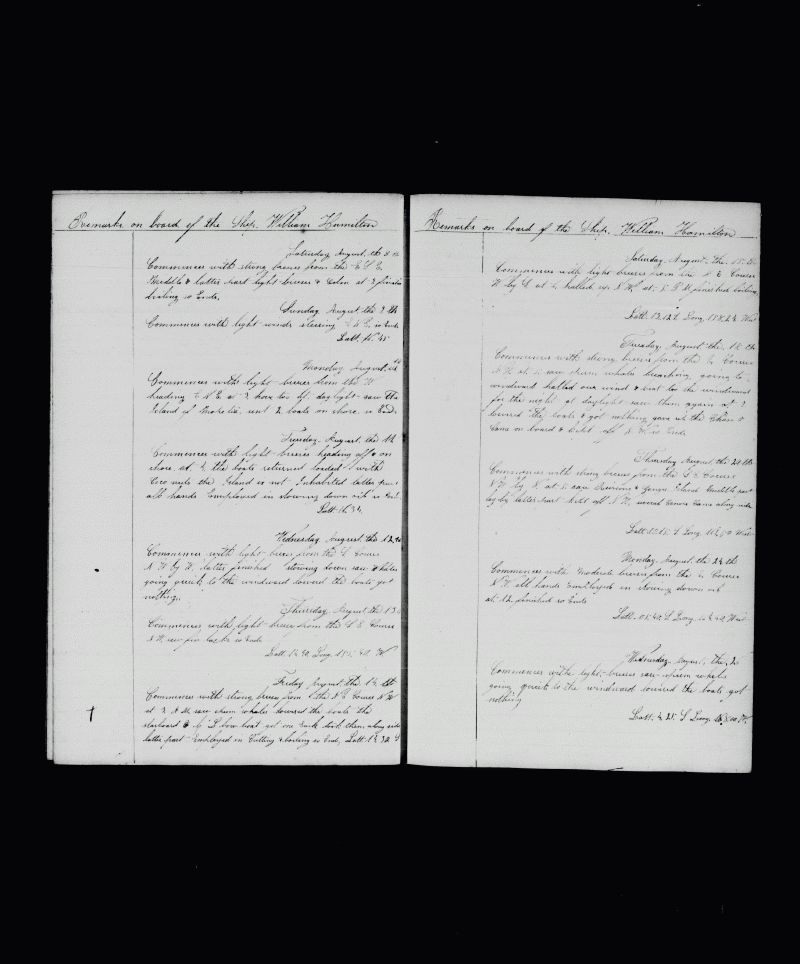 Remarks on board of the Ship. William Hamilton
Saturday August the 8 th
Commences with strong breeses from the E S E
Meddle & latter part light breeses & Calm at 3 finished
boiling so Ends.
Sunday August the 9 th
Commences with light winds steering so Ends
Latt. 14. 45
Monday August.
Commences with light breeses from the
heading E N E at 3 hove too til daylight saw the
Island of sent 2 boats on shore so Ends.
Tuesday. August. the 11
Commences with light breese heading off & on
shore at 4 the boats returned loaded with
Coco nuts the Island is not Inhabited latter part
all hands Employed in stowing down oil so Ends.
Latt
Wednesday August. the 12.
Commences with light breese from the Course
N W by W. latter finished stowing down saw whales
going quick to the windward lowerd the boats got
nothing.
Thursday August the 13
Commences with light breese from the Course
N W saw fin backs so Ends
Latt. Long. 155. 40. W
Friday August. the 14
Commences with strong breese from the Course N W
at 3 A M. saw sperm whales lowered the boats the
starboard & bow boat got one Each took them along side
latter part Employed in Cutting & boiling so Ends, Latt. S
Remarks on board of the Ship. William Hamilton
Saturday August. The. 15.
Commences with light breeses from the N E Course
W by S. at 6 halled up N W. at 5 P M finished boiling.
Latt. 13. 12 S Long. 158. 24 West
Tuesday August the. 18
Commences with strong breese from the Course
N W at saw sperm whales breaching going to
windward halled our wind & beat too the windward
for the night at daylight saw them again at
lowered the boats & got nothing gave up the Chase &
Came on board & kept off N W so Ends
Thursday August the 20 th
Commences with strong breese from the Course
N W by N. at 5. saw & Island Meddle part
lay by latter part kept off N W, several Canoes Came along side
Latt. 10. 15. S Long. West
Monday August the 24 th
Commences with moderate breese from the Course
N W. all hands Employed in stowing down oil
at 12 finished so Ends
Latt. 05. S Long. West
Wednesday August. the, 26
Commences with light breeses saw sperm whales
going quick to the windward lowered the boats got
nothing
Latt. 4 25. S Long. W.